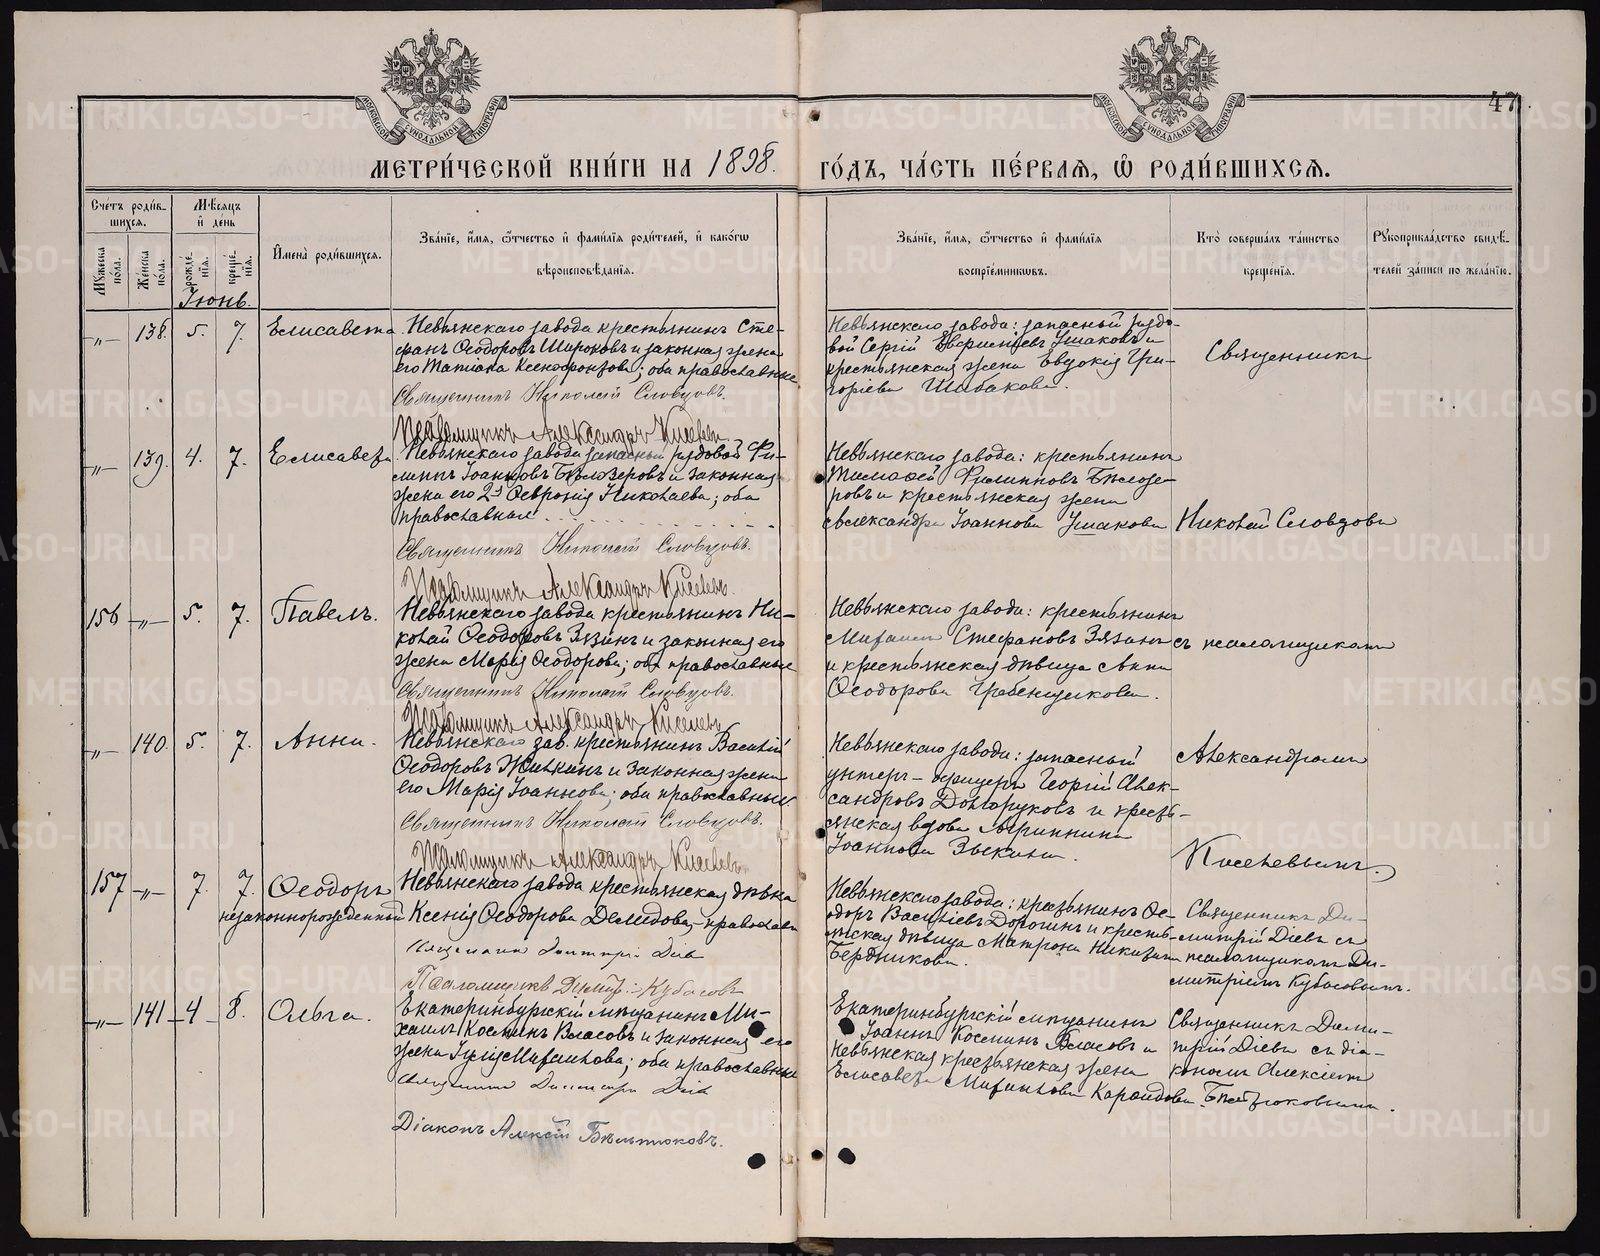 47
МЕТРИ́ЧЕСКОЙ КНИ́ГИ НА 1898. ГО́ДЪ, ЧА́СТЬ ПЕ́РВАЯ, Ѡ҆ РОДИ́ВШИХСЯ.
Сче́тъ роди́в-
шихся.
Мѣсяцъ
и҆ де́нь
Мꙋжеска пола.
Же́нска пола.
рожде́нїѧ.
креще́нїѧ.
И҆мена̀ роди́вшихся.
Зва́нїе, и҆́мѧ, ѻ҆́тчество и҆ фами́лїѧ роди́телей, и҆ како́гѡ
вѣроисповѣ́данїѧ.
Зва́нїе, и҆́мѧ, ѻ҆́тчество и҆ фами́лїѧ
воспрїе́мникѡвъ.
Кто̀ соверша́лъ та́инство
креще́нїѧ.
Рꙋкоприкла́дство свидѣ́-
телей за́писи по жела́нїю.
Іюнь.
-„- 138. 5. 7. Елисавета
Невьянскаго завода крестьянинъ Сте-
фанъ Ѳеодоровъ Широковъ и законная жена
его Татіана Ксенофонтова; оба православные
Священникъ Николай Словцовъ.
Псаломщикъ Александръ Киселевъ
Невьянскаго завода: запасный рядо-
вой Сергій Ушаковъ и
крестьянская жена Евдокія Гри-
горіева Шибакова.
Священникъ
-„- 139. 4. 7. Елисавета
Невьянскаго завода запасный рядовой Фи-
липпъ Іоанновъ Бѣлозеровъ и законная
жена его 2я Ѳевронія Николаева; оба
православные
Священникъ Николай Словцовъ.
Псаломщикъ Александръ Киселевъ
Невьянскаго завода: крестьянинъ
Тимоѳей Филипповъ Бѣлозе-
ровъ и крестьянская жена
Александра Іоаннова Ушакова
Николай Словцовъ
156 -„- 5. 7. Павелъ.
Невьянскаго завода крестьянинъ Ни-
колай Ѳеодоровъ Зязинъ и законная его
жена Марія Ѳеодорова; оба православные
Священникъ Николай Словцовъ.
Псаломщикъ Александръ Киселевъ
Невьянскаго завода: крестьянинъ
Михаилъ Стефановъ Зязинъ
и крестьянская дѣвица Анна
Ѳеодорова Гребенщикова.
съ псаломщикомъ
-„- 140. 5. 7. Анна.
Невьянскаго зав. крестьянинъ Василій
Ѳеодоровъ Жилкинъ и законная жена
его Марія Іоаннова; оба православные
Священникъ Николай Словцовъ.
Псаломщикъ Александръ Киселевъ
Невьянскаго завода: запасный
унтеръ-офицеръ Георгій Алек-
сандровъ Долгоруковъ и кресть-
янская вдова Агриппина
Іоаннова Зыкина.
Александромъ
Киселевымъ.
157 -„- 7. 7. Ѳеодоръ
незаконнорожденный
Невьянскаго завода крестьянская дѣвка
Ксенія Ѳеодорова Демидова, православн
Священникъ Димитрій Діевъ
Псаломщикъ Дмитрій Кубасовъ
Невьянскаго завода: крестьянинъ Ѳе-
одоръ Васильевъ Дорогинъ и кресть-
янская дѣвица Матрона Никитина
Бердникова.
Священникъ Ди-
митрій Діевъ съ
псаломщикомъ Ди-
митріемъ Кубасовымъ.
-„- 141 4 8. Ольга.
Екатеринбургскій мѣщанинъ Ми-
хаилъ Косминъ Власовъ и законная его
жена Іулія Михаилова; оба православные
Священникъ Димитрій Діевъ
Діаконъ Алексій Бѣльтюковъ.
Екатеринбургскій мѣщанинъ
Іоаннъ Косминъ Власовъ и
невьянская крестьянская жена
Елисавета Михаилова Карандова.
Священникъ Дими-
трій Діевъ съ діа-
кономъ Алексіемъ
Бѣльтюковымъ.